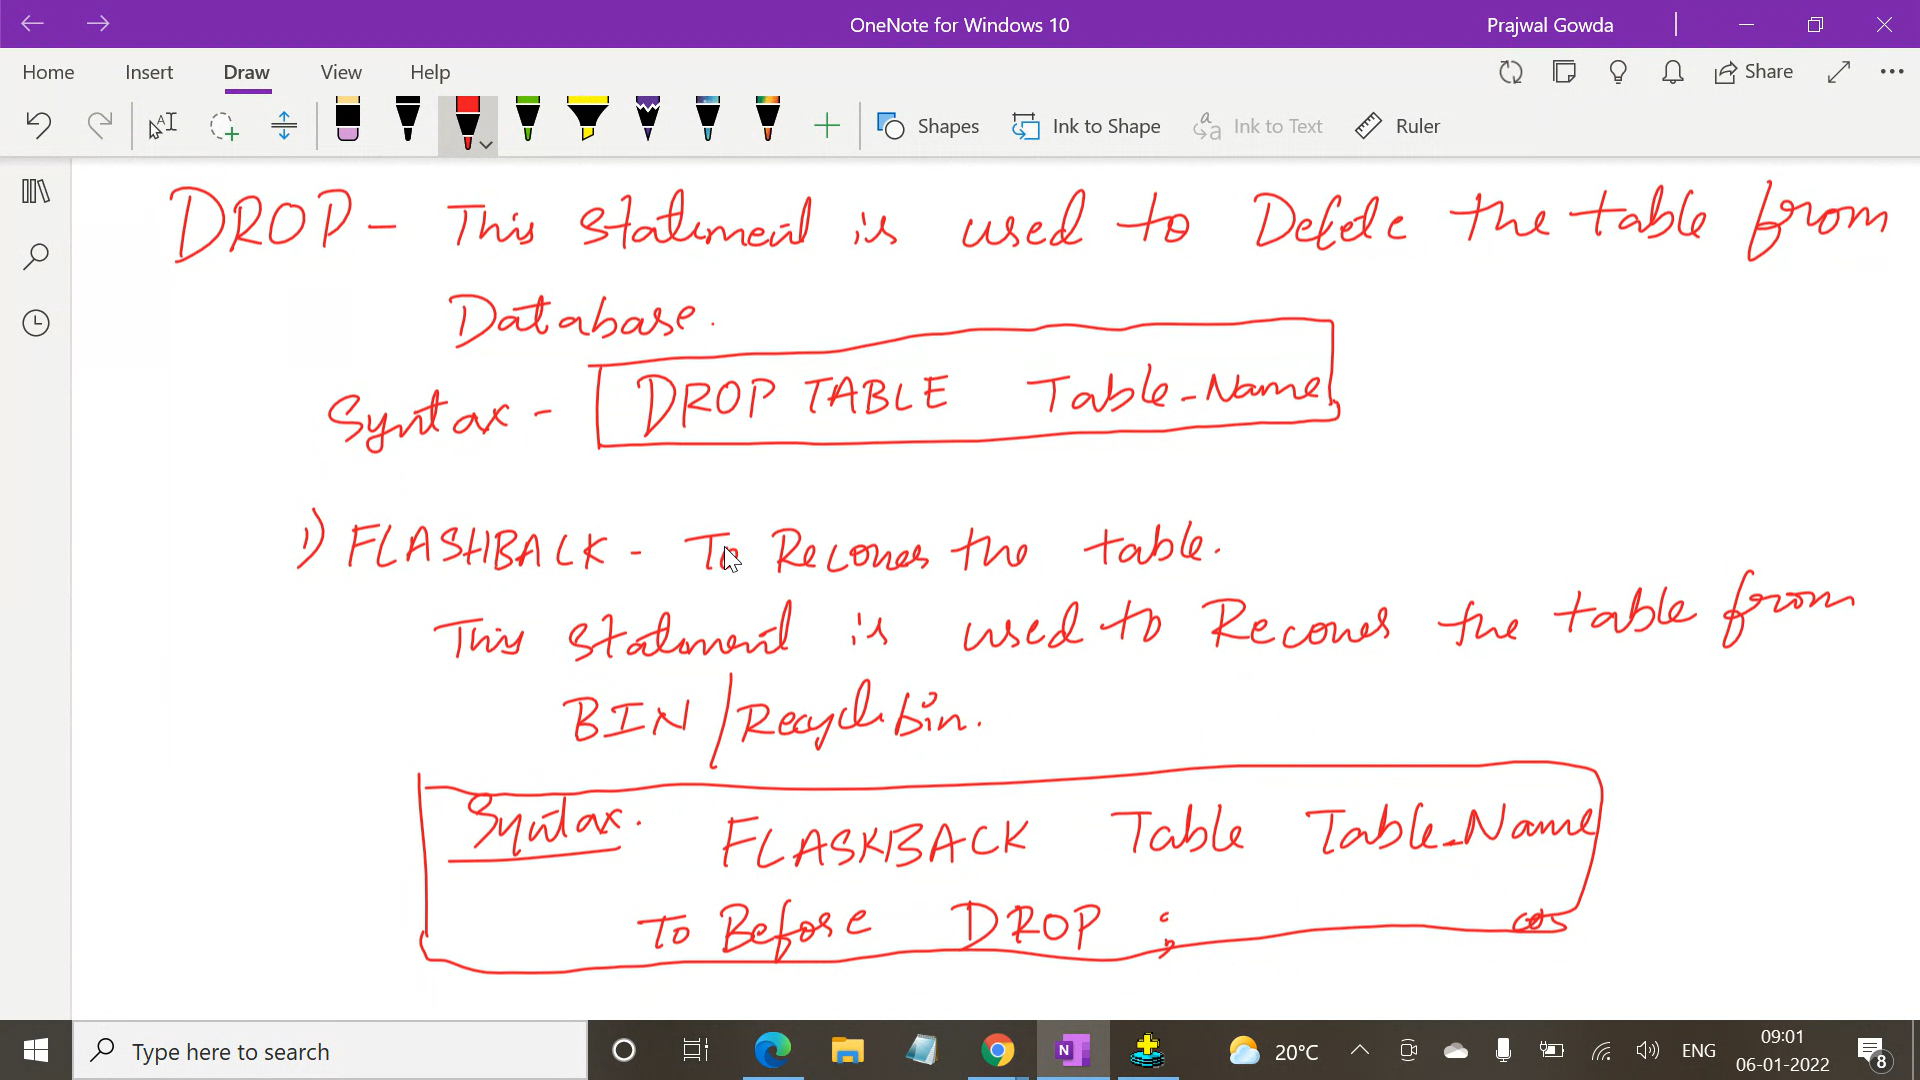 OneNote for Windows 10
Prajwal Gowda
Home Insert Draw View Help
Share
Shapes Ink to Shape Ink to Text Ruler
DROP - This statement is used to Delete the table from
Database.
Syntax - DROP TABLE Table_Name
1) FLASHBACK - To Recover the table.
This statement is used to Recover the table from
BIN / Recyclebin.
Syntax. FLASKBACK Table Table_Name
To Before DROP ;
Type here to search
20°C
ENG
09:01
06-01-2022
8